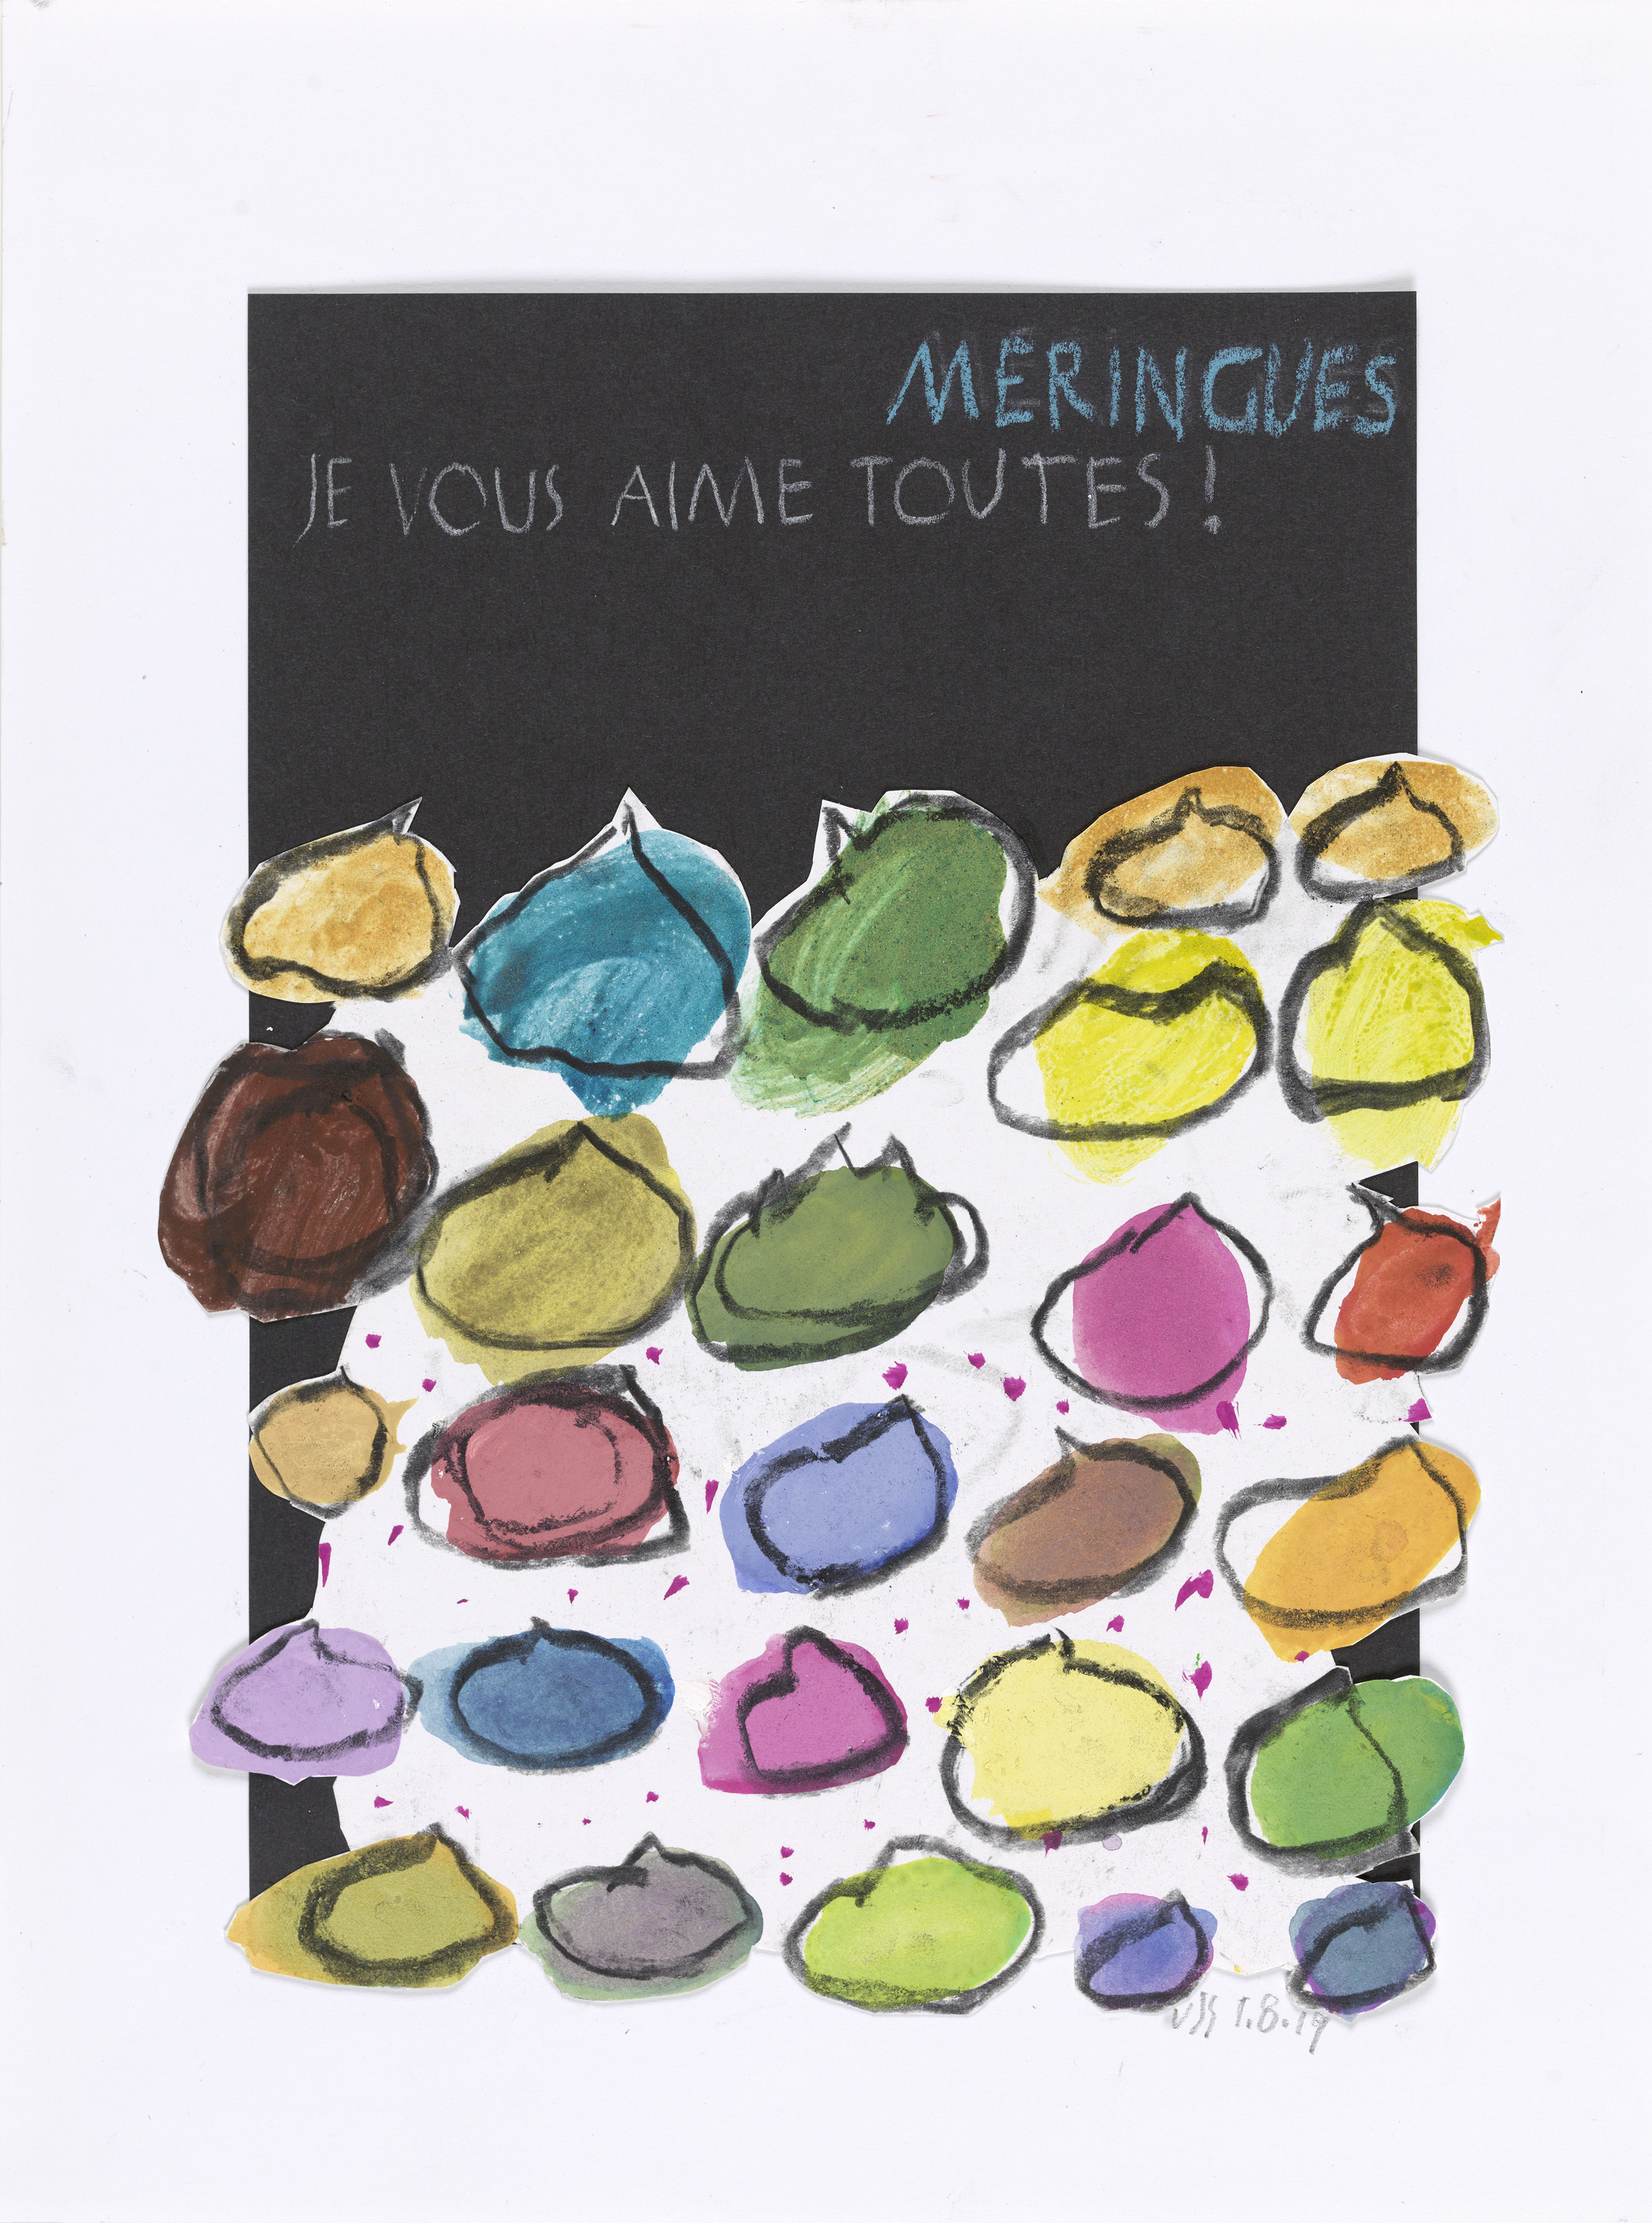 MERINGUES
JE VOUS AIME TOUTES!
1.8.19